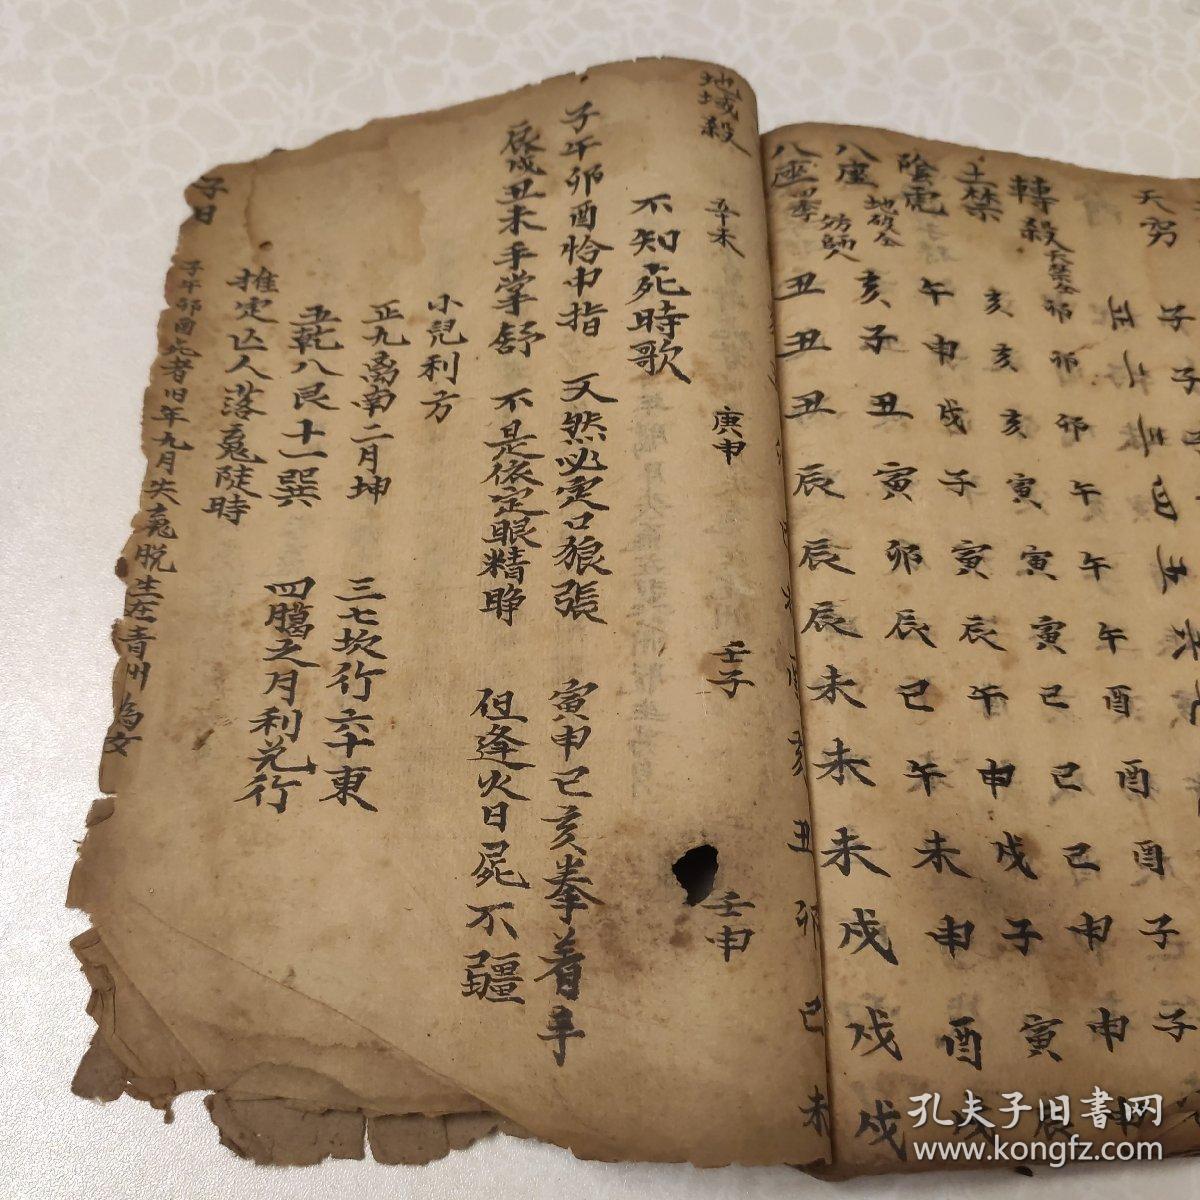 天罡
正 二 三 月 五
轉殺 天禁全 卯 卯 卯 午 午 午 酉 酉 酉 子 子
土禁 亥 亥 亥 寅 寅 寅 巳 巳 巳 申 申 申
陰電 午 申 戌 子 寅 辰 午 申 戌 子 寅 辰
八座 地破全 亥 子 丑 寅 卯 辰 巳 午 未 申 酉 戌
八座 四季 丑 丑 丑 辰 辰 辰 未 未 未 戌 戌 戌
酉 亥 丑 卯 巳 未
地域殺 辛未 庚申 壬子 壬申
不知死時歌
子午卯酉恰中指 天然必定口狼張 寅申巳亥拳着手
辰戌丑未手掌舒 不是依定眼精睁 但逢火日屍不疆
小兒利方
正九离南二月坤 三七坎行六十東
五乾八艮十一巽 四臈之月利兑行
推定亾人落䰟陡時
子日
子午卯酉死者旧年九月失䰟脱生在青州為女
孔夫子旧书网
www.kongfz.com